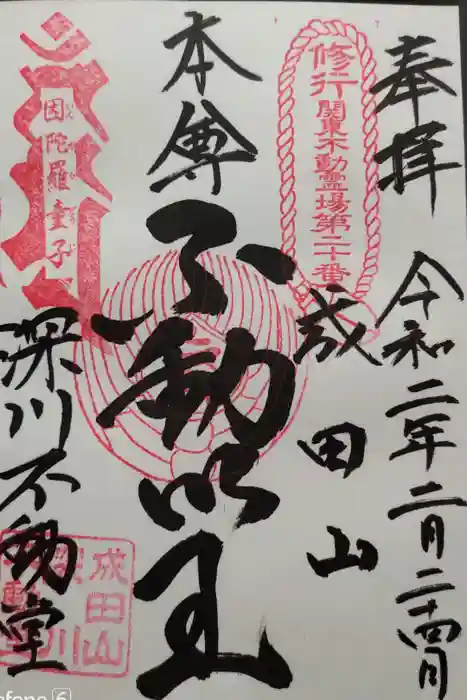 奉拝
令和二年二月二十四日
修行
関東不動霊場第二十番
成田山
本尊
不動明王
因陀羅童子
深川不動堂
成田山
深川
不動堂